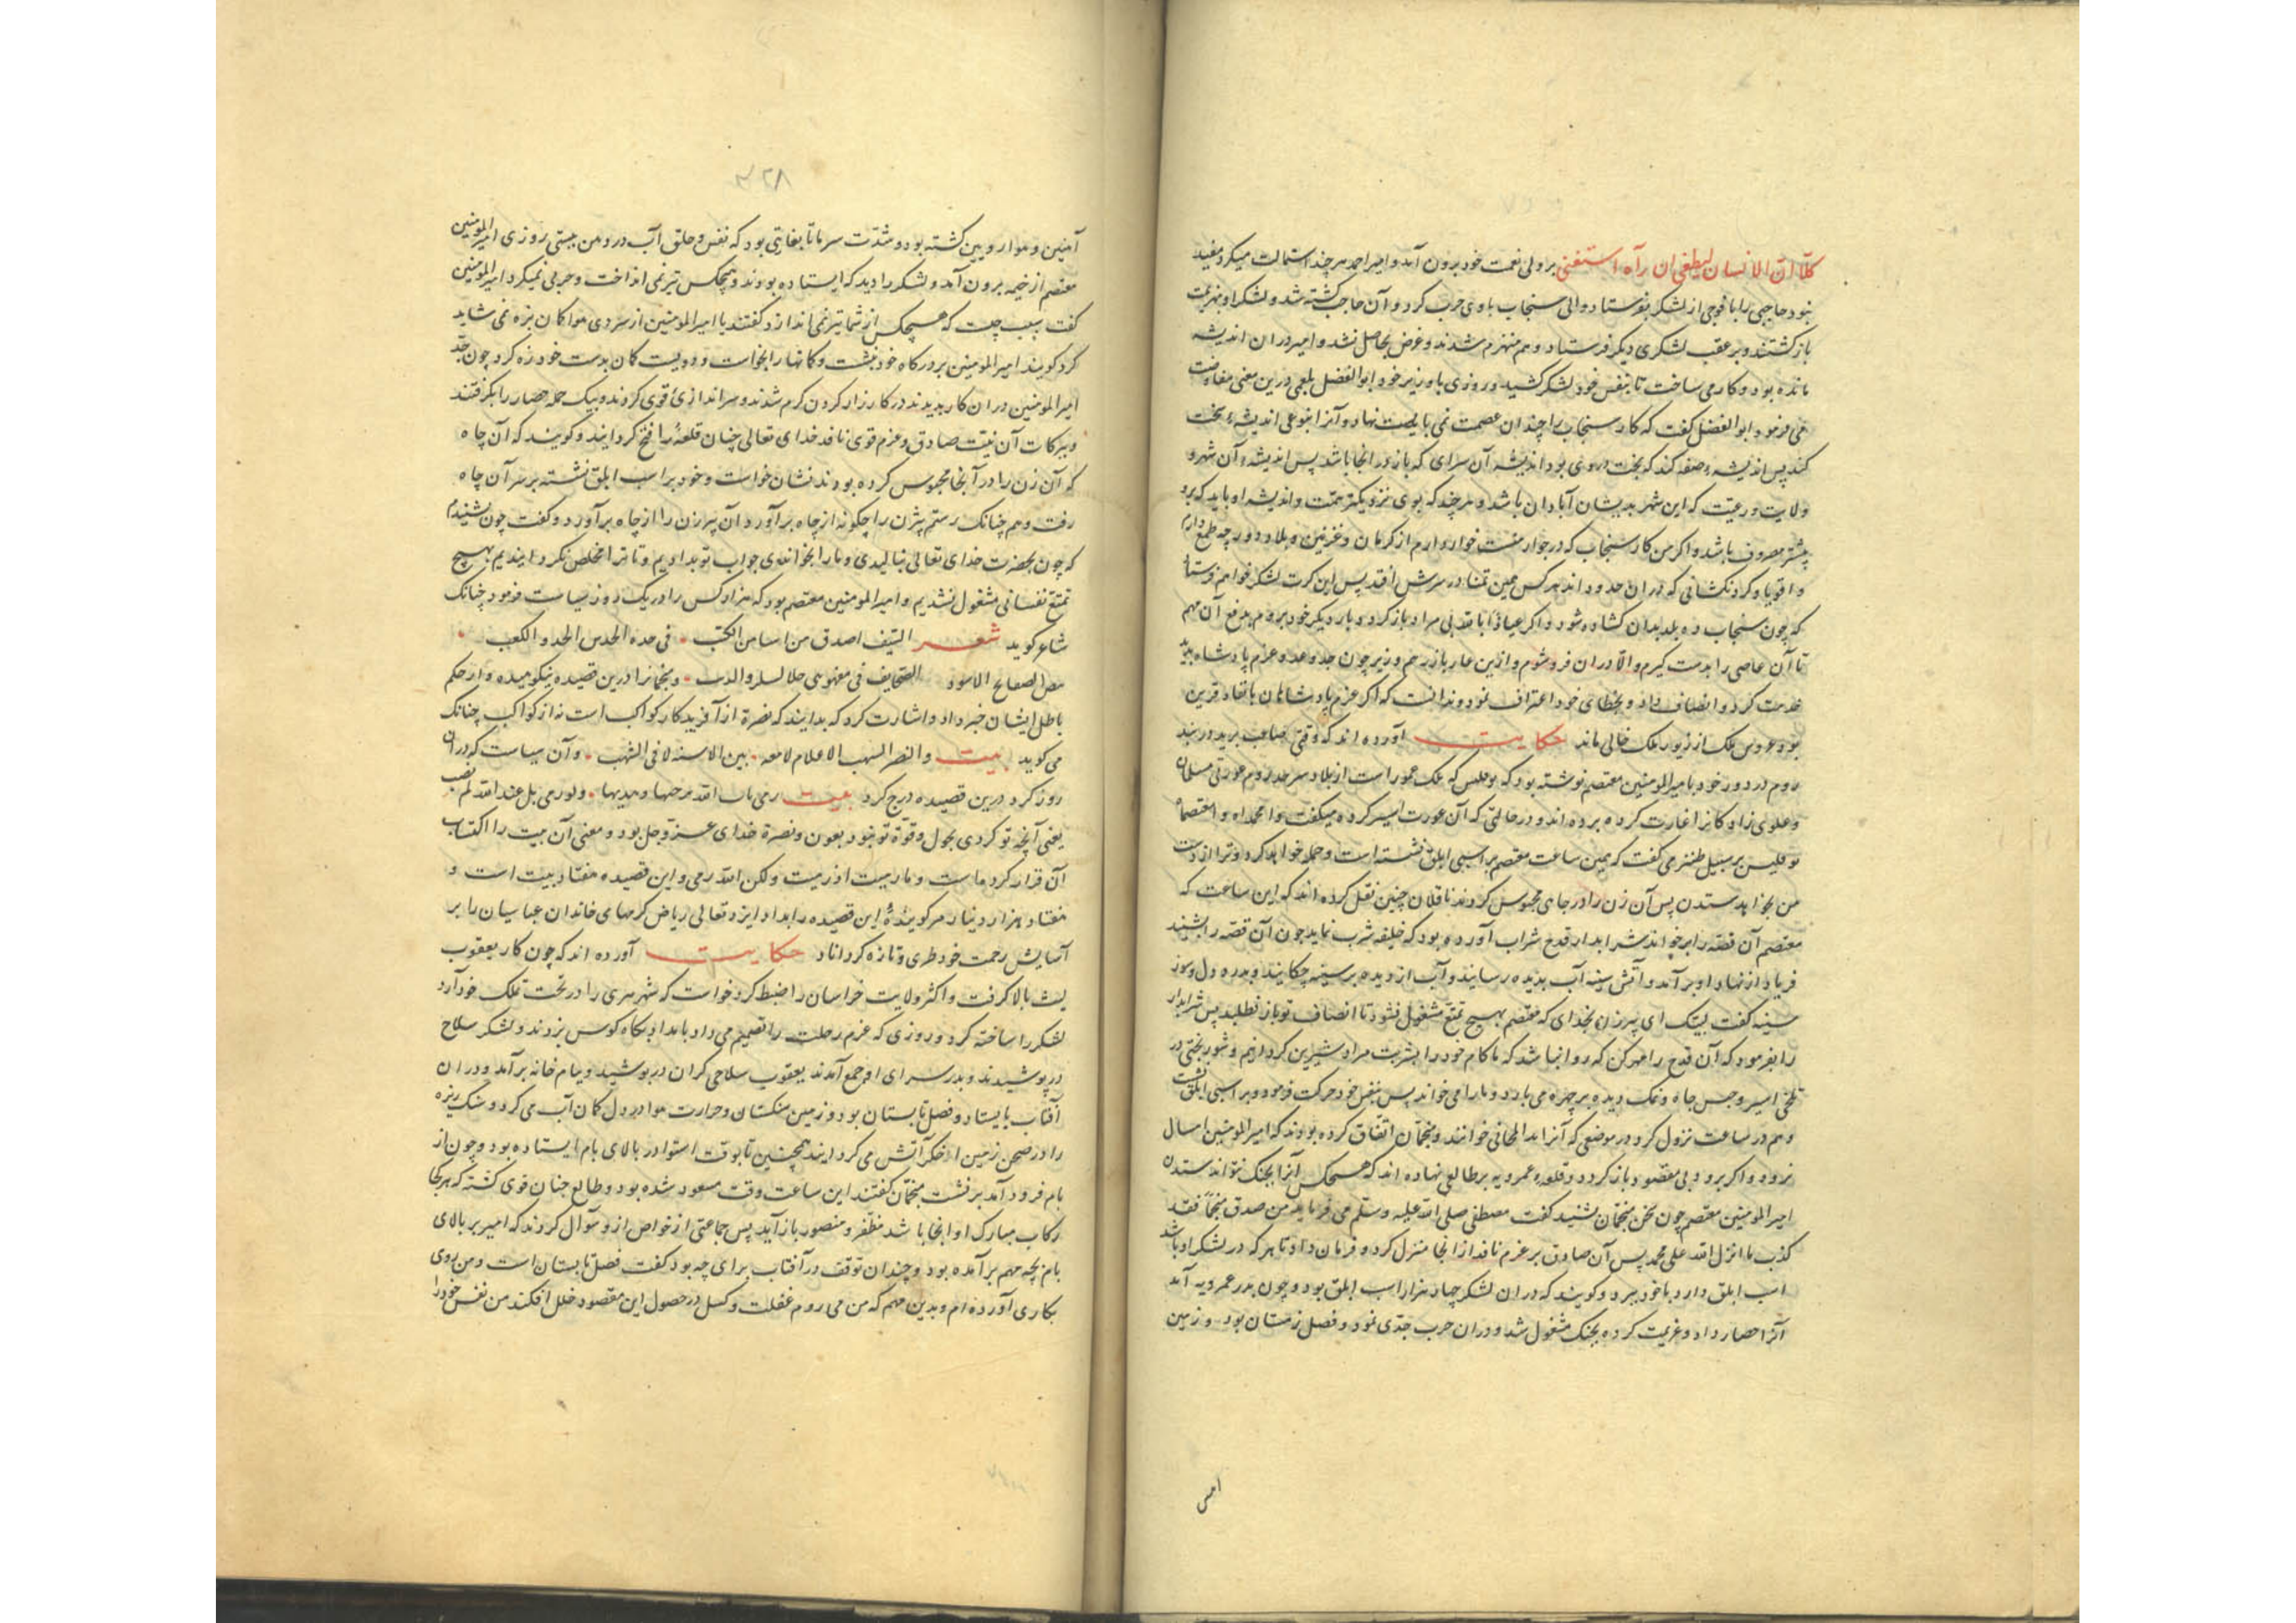 کلّا ان الانسان لیطغی ان رآه استغنی بر ولی نعمت خود برون آمد و امیر احمد هر چند استمالت میکرد مفید
نبود حاجبی را با فوجی از لشکر بفرستاد و والی سنجاب با وی حرب کرد و آن حاجب کشته شد و لشکر او بهزیمت
باز کشتند و بر عقب لشکری دیکر فرستاد و هم منهزم شدند و غرض بحاصل نشد و امیر در ان اندیشه
مانده بود و کار می ساخت تا بنفس خود لشکر کشید و روزی با وزیر خود ابو الفضل بلعمی درین معنی مفاوضت
می فرمود ابو الفضل کفت که کار سنجاب را چندان عصمت نمی باید نهاد و آنرا بنوعی اندیشهٔ نخت
کند پس اندیشهٔ صفه کند که نخت در وی بود اندیشه آن سرای که بازو انجا باشد پس اندیشهٔ آن شهر و
ولایت و رعیت که این شهر بدیشان آبادان باشد و هر چند که بوی نزدیکتر همّت و اندیشه او باید که برد
بیشتر مصروف باشد و اکر من کار سنجاب که در جوار منست خوار دارم از کرمان و غزنین و بلاد دور چه طمع دارم
و اقویا و کردنکشانی که در ان حدود اند هر کس همین تمنا در سرش افتد پس این کرت لشکر خواهم فرستاد
که چون سنجاب ده بلد بدان کشاده شود و اکر عیاذا باقد بی مراد باز کردد بار دیکر خود بروم بدفع آن مهم
تا آن عاصی را بدست کیرم و الّا در ان فرو شوم و ازین عار باز رهم وزیر چون جد و عد و عزم پادشاه بدید
خدمت کرد و انصاف داد و بخطای خود اعتراف نمود و بدانست که اکر عزم پادشاهان با نفاذ قرین
نبود عروس ملک از زیور ملک خالی ماند حکایت آورده اند که وقتی صاحب برید در بند
روم در دور خود بامیر المومنین معتصم نوشته بود که نوفلس که ملک عموراست از بلاد سرحد روم عورتی مسلمان
و علوی زادکانرا غارت کرده برده اند و در حالتی که آن عورت اسیر کرده میکفت وا محمداه و امعتصماه
نوفلیس بر سبیل طنز می کفت که همین ساعت معتصم بر اسبی ابلق نشسته است و حمله خواهد کرد و ترا از دست
من بخواهد ستدن پس آن زن را در جای محبوس کردند ناقلان چنین نقل کرده اند که این ساعت که
معتصم آن قصه را بر خواند شرابدار قدح شراب آورده بود که خلیفه شرب نماید چون آن قصّه را بشنید
فریاد از نهاد او بر آمد و آتش سینه آب بدیده رسانید و آب از دیده بر سینه چکانید و بدرد دل و سوز
سینه کفت لبیّک ای پیر زن بخدای که معتصم بهیچ تمتّع مشغول نشود تا انصاف تو باز نطلبد پس شرابدار
را بفرمود که آن قدح را مهر کن که روا نباشد که ما کام خود را بشربت مراد شیرین کردانیم و شور بختی در
تلخی اسیر و حبس چاه و نمک دیده بر چهره می بارد و ما را می خواند پس بنفس خود حرکت فرمود و بر اسبی ابلق نشست
و هم در ساعت نزول کرد در موضعی که آنرا بد الحانی خوانند و منجمّان اتفاق کرده بودند که امیر المومنین امسال
نرود و اکر برود بی مقصود باز کردد و قلعهٔ عموریه بر طالعی نهاده اند که هیچکس آنرا بجنک نتواند ستدن
امیر المومنین معتصم چون سخن منجمّان بشنید کفت مصطفی صلی الله علیه وسلّم می فرماید من صدق منجمّاً فقد
کذب بما انزل اقد علی محمد پس آن صادق بر عزم نافذ از انجا منزل کرد و فرمان داد تا هر که در لشکر او باشد
اسب ابلق دارد با خود ببرد و کویند که در ان لشکر چهار هزار اسب ابلق بود و چون بدر عمرویه آمد
آنرا حصار داد و عزیمت کرده بجنک مشغول شد و در ان حرب جدّی نمود و فصل زمستان بود و زمین
امس
۳۲۸
آهنین و هوا رویین کشته بود و شدّت سرما تا بغایتی بود که نفس و حلق آب در دهن ببستی روزی امیر المومنین
معتصم از خیمه برون آمد و لشکر را دید که ایستاده بودند و هیچکس تیر نمی انداخت و حربی نمیکرد امیر المومنین
کفت سبب چیست که هیچکس از شما تیر نمی اندازد کفتند یا امیر المومنین از سردی هوا کمان بزه نمی شاید
کرد کویند امیر المومنین بر درکاه خود نشست و کمانها را بخواست و دویست کمان بدست خود زه کرد چون جدّ
امیر المومنین در ان کار بدیدند در کارزار کردن کرم شدند و سر اندازیٔ قوی کردند و بیک حمله حصار را بکرفتند
و ببرکات آن نیّت صادق و عزم قوی نافذ خدای تعالی چنان قلعهٔ را فتح کردانید و کویند که آن چاه
که آن زن را در آنجا محبوس کرده بودند نشان خواست و خود بر اسب ابلق نشسته بر سر آن چاه
رفت و هم چنانک رستم بیژن را چکونه از چاه بر آورد آن پیر زن را از چاه بر آورد و کفت چون شنیدم
که چون بحضرت خدای تعالی بنالیدی و ما را بخواندی جواب تو بدادیم و تا ترا مخلص نکردانیدیم بهیچ
تمتّع نفسانی مشغول نشدیم و امیر المومنین معتصم بود که هزار کس را در یک روز سیاست فرمود چنانک
شاعر کوید شعر السّیف اصدق من اسا من الکتب • فی حده الحدس الحد و الکعب •
الصفایح الاسود الصّحایف فی متونهن جلا الشک و الریب • و منجمانرا درین قصیده نیکوهیده و از حکم
باطل ایشان خبر داد و اشارت کرد که بدانید که نصرة از آفریدکار کواکب است نه از کواکب چنانک
می کوید بیت والنصر الشهب الاعلام لامعه • بین الاسنه لا فی الشهب • و آن سیاست که در ان
روز کرد درین قصیده درج کرد بیت رمی بک اقد برجیها و هدیها • ولو رمی بل عند اقد لم یصب
یعنی آنچه تو کردی بحول و قوّة تو نبود بعون و نصرة خدای عزّ و جل بود و معنی آن بیت را اکتساب
آن قرار کرد ماست و ما رمیت اذ رمیت ولکن الله رمی و این قصیده هفتاد بیت است و
هفتاد هزار دینار مر کویندهٔ این قصیده را بداد ایزد تعالی ریاض کرمهای خاندان عباسیان را بر
آسایش رحمت خود طری و تازه کرداناد حکایت آورده اند که چون کار یعقوب
لیث بالا کرفت و اکثر ولایت خراسان را ضبط کرد خواست که شهر هری را در تحت تملّک خود آرد
لشکر را ساخته کرد و روزی که عزم رحلت را تصمیم می داد بامداد پکاه کوس بزدند و لشکر سلاح
در پوشیدند و بدر سرای او جمع آمدند یعقوب سلاحی کران در پوشید و ببام خانه بر آمد و در ان
آفتاب بایستاد و فصل تابستان بود و زمین سنکستان و حرارت هوا در دل کمان آب می کرد و سنک ریزه
را در صحن زمین اخکر آتش می کردانید همچنین تا بوقت استوا در بالای بام ایستاده بود و چون از
بام فرود آمد بر نشست منجمّان کفتند این ساعت وقت مسعود شده بود و طالع چنان قوی کشته که هر کجا
رکاب مبارک او انجا باشد مظفّر و منصور باز آید پس جماعتی از خواص از و سوال کردند که امیر بر بالای
بام بچه مهم بر آمده بود و چندان توقف در آفتاب برای چه بود کفت فصل تابستان است و من روی
بکاری آورده ام و بدین مهم که من می روم غفلت و کسل در حصول این مقصود خلل افکند من نفس خود را